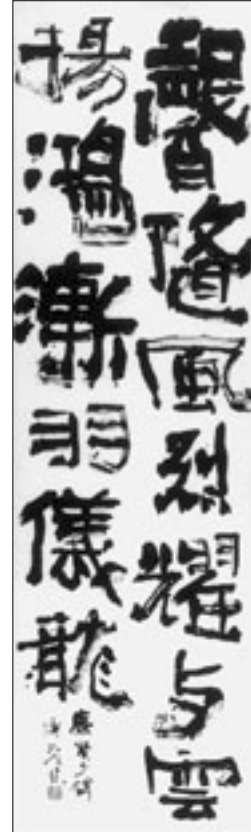 馨隨風烈耀与雲
揚鴻漸羽儀龍